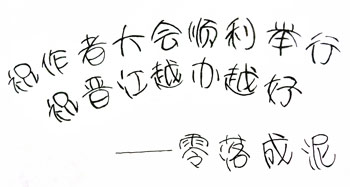 祝作者大会顺利举行
祝晋江越办越好
——零落成泥